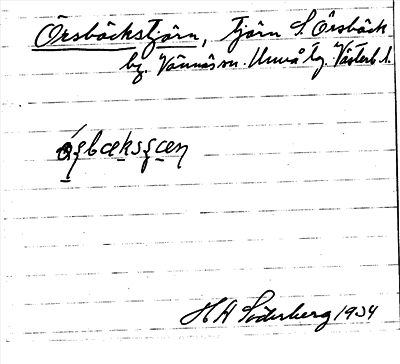 Örsbäckstjärn, Tjärn S. Örsbäck
by. Vännäs sn. Umeå tg. Västerb. l.
H A Söderberg 1934